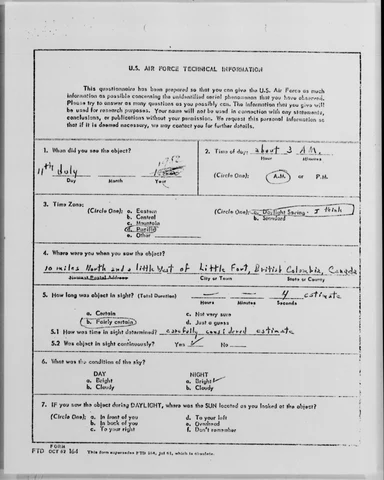 U.S. AIR FORCE TECHNICAL INFORMATION
This questionnaire has been prepared so that you can give the U.S. Air Force as much
information as possible concerning the unidentified aerial phenomenon that you have observed.
Please try to answer as many questions as you possibly can. The information that you give will
be used for research purposes. Your name will not be used in connection with any statements,
conclusions, or publications without your permission. We request this personal information so
that if it is deemed necessary, we may contact you for further details.
1. When did you see the object?
11th July 1952
Day Month Year
2. Time of day: about 3 A.M.
Hour Minutes
(Circle One): A.M. or P.M.
3. Time Zone:
(Circle One): a. Eastern
b. Central
c. Mountain
d. Pacific
e. Other
(Circle One): a. Daylight Saving - I think
b. Standard
4. Where were you when you saw the object?
10 miles North and a little West of Little Fort, British Columbia, Canada
Nearest Postal Address City or Town State or County
5. How long was object in sight? (Total Duration) — — 4 estimate
Hours Minutes Seconds
a. Certain c. Not very sure
b. Fairly certain d. Just a guess
5.1 How was time in sight determined? carefully considered estimate
5.2 Was object in sight continuously? Yes ✓ No
6. What was the condition of the sky?
DAY NIGHT
a. Bright a. Bright ✓
b. Cloudy b. Cloudy
7. IF you saw the object during DAYLIGHT, where was the SUN located as you looked at the object?
(Circle One): a. In front of you d. To your left
b. In back of you e. Overhead
c. To your right f. Don't remember
FORM
FTD OCT 62 164 This form supersedes FTD 164, Jul 61, which is obsolete.